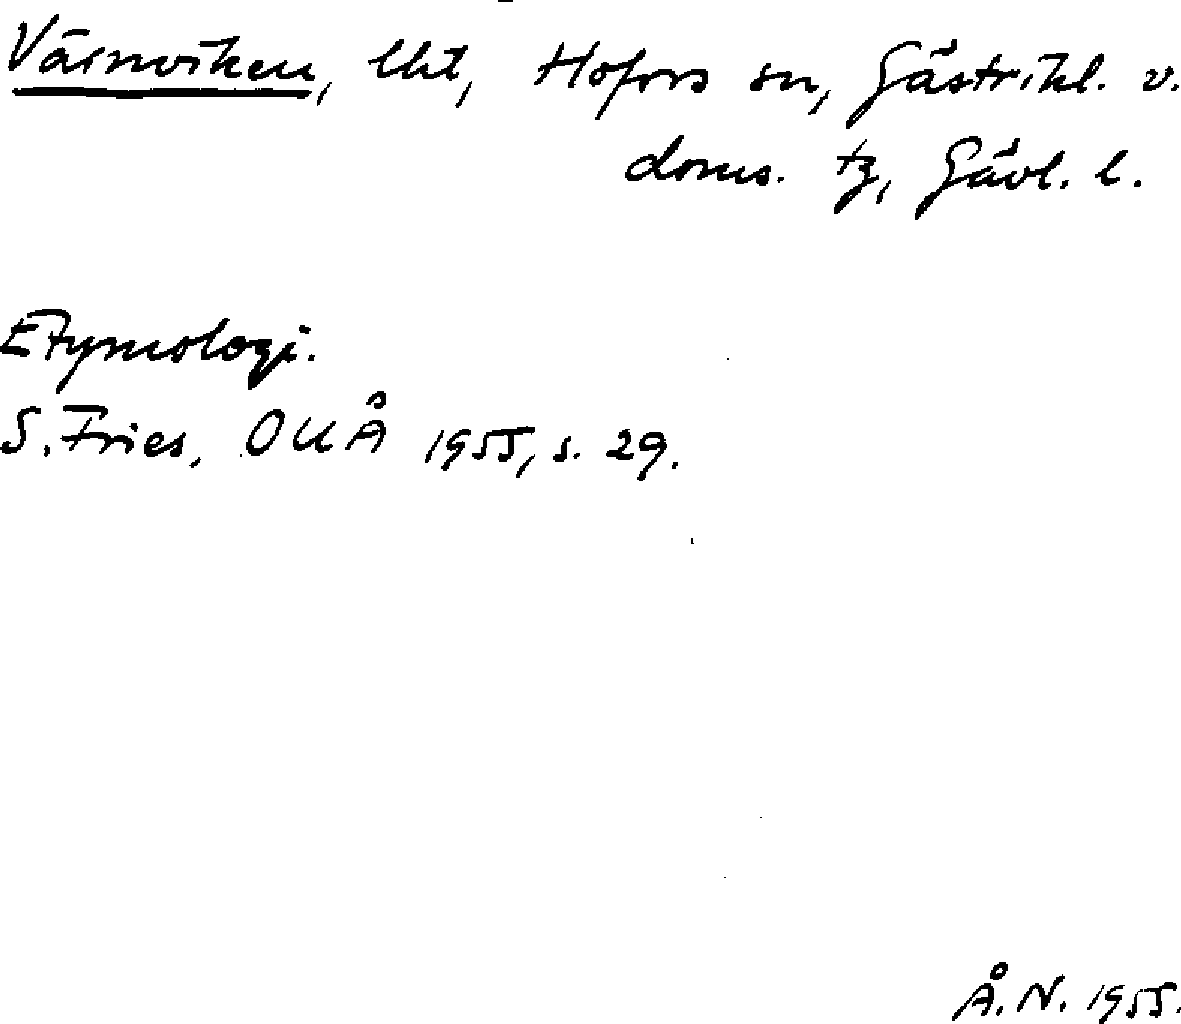 Värnviken, lht, Hofors sn, Gästrikl. v.
doms. tg, Gävl. l.
Etymologi.
S. Fries, OUÅ 1955, s. 29.
Å. N. 1955.